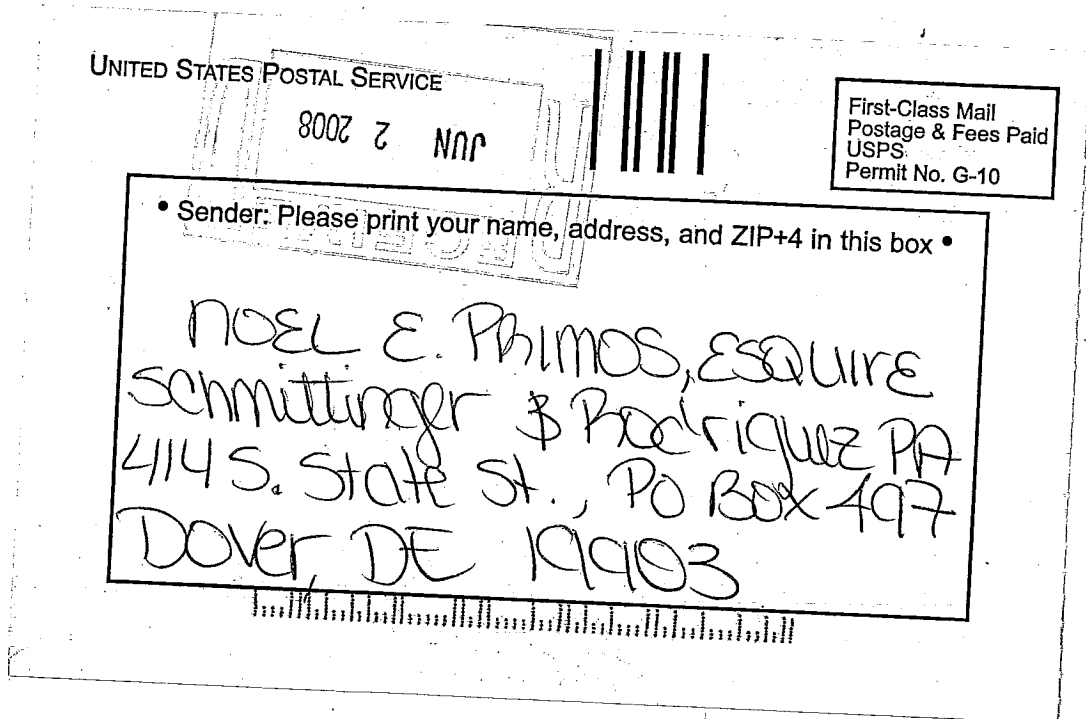 UNITED STATES POSTAL SERVICE
JUN 2 2008
First-Class Mail
Postage & Fees Paid
USPS
Permit No. G-10
• Sender: Please print your name, address, and ZIP+4 in this box •
NOEL E. PRIMOS, ESQUIRE
Schmittinger & Rodriguez PA
414 S. State St., PO Box 497
Dover, DE 19903